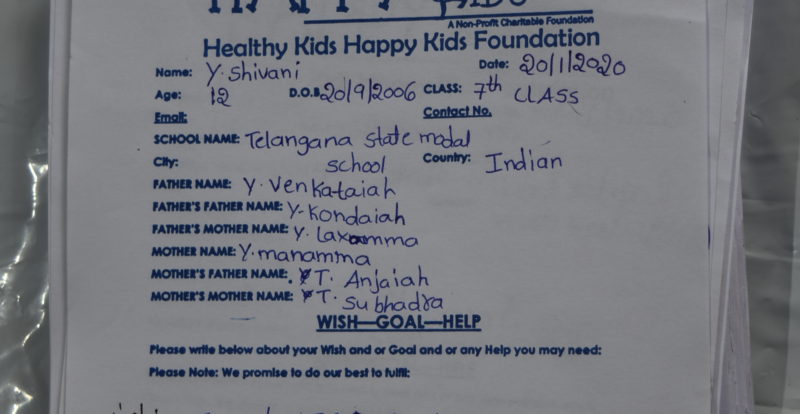 HAPPY KIDS
A Non-Profit Charitable Foundation
Healthy Kids Happy Kids Foundation
Name: Y. Shivani Date: 20/1/2020
Age: 12 D.O.B 20/9/2006 CLASS: 7th CLASS
Email: Contact No.
SCHOOL NAME: Telangana state modal
City: school Country: Indian
FATHER NAME: Y. Venkataiah
FATHER'S FATHER NAME: Y. Kondaiah
FATHER'S MOTHER NAME: Y. Laxamma
MOTHER NAME: Y. manamma
MOTHER'S FATHER NAME: T. Anjaiah
MOTHER'S MOTHER NAME: T. Subhadra
WISH—GOAL—HELP
Please write below about your Wish and or Goal and or any Help you may need:
Please Note: We promise to do our best to fulfil: